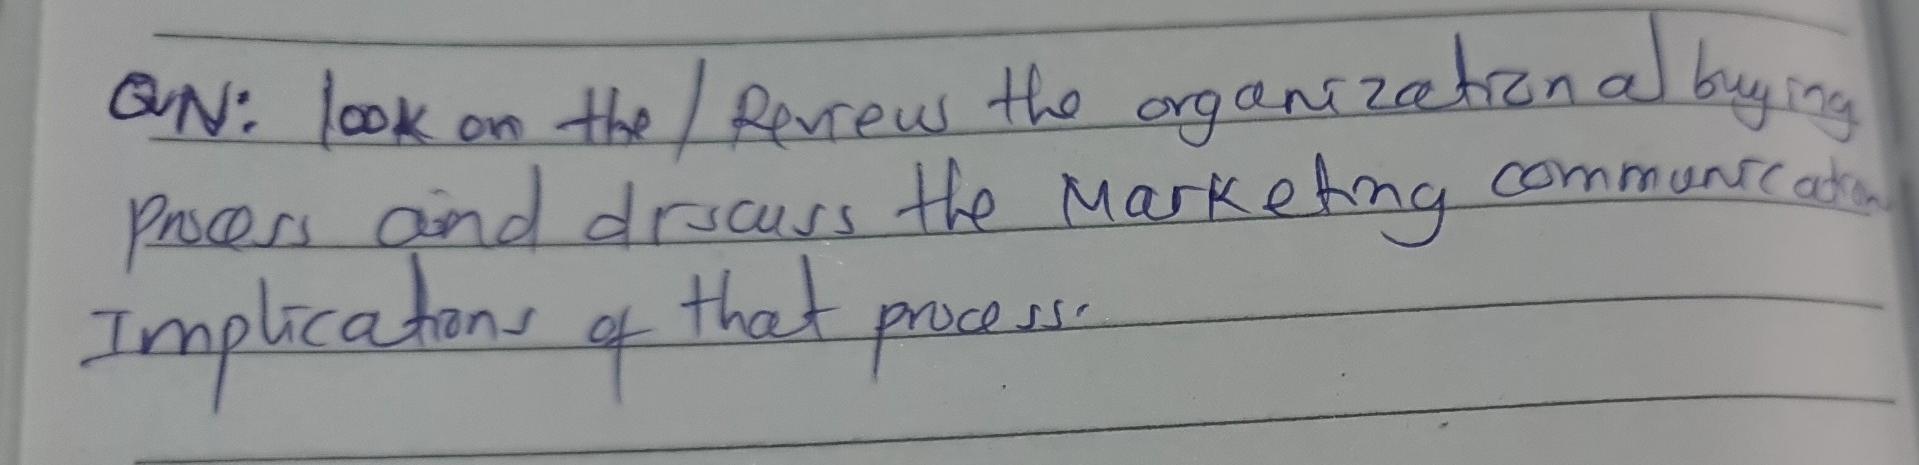 QN: look on the / Review the organizational buying
process and discuss the Marketing communication
Implications of that process.